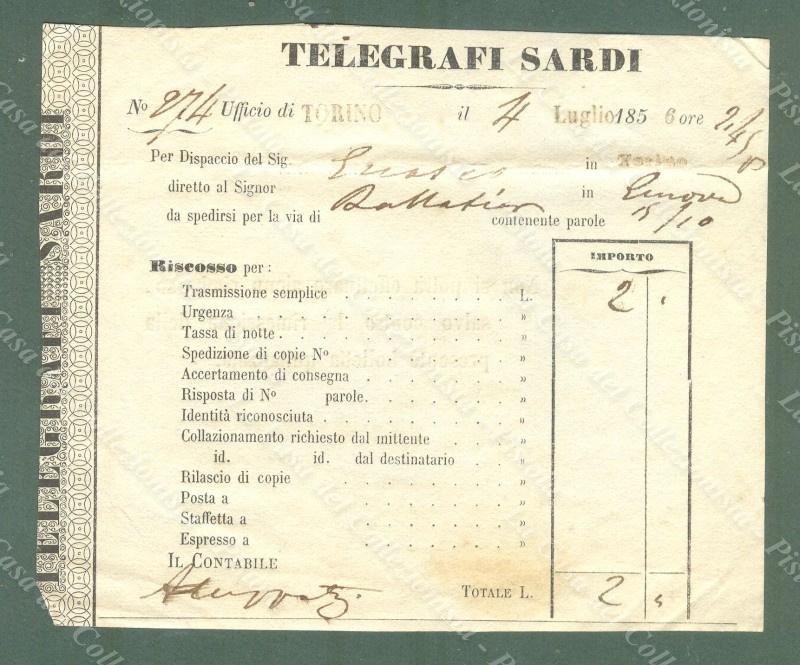 TELEGRAFI SARDI
No 274 Ufficio di TORINO il 4 Luglio 1856 ore 2/45
Per Dispaccio del Sig. in Torino
diretto al Signor in Genova
da spedirsi per la via di contenente parole 15/10
IMPORTO
Riscosso per:
Trasmissione semplice . . . . . . . . L. 2 "
Urgenza . . . . . . . . . . . "
Tassa di notte . . . . . . . . . . "
Spedizione di copie No . . . . . . . "
Accertamento di consegna . . . . . . . "
Risposta di No parole. . . . . . . "
Identità riconosciuta . . . . . . . . "
Collazionamento richiesto dal mittente . . . . "
id. id. dal destinatario . . . "
Rilascio di copie . . . . . . . . "
Posta a . . . . . . . . "
Staffetta a . . . . . . . . "
Espresso a . . . . . . . . "
IL CONTABILE
TOTALE L. 2 "
TELEGRAFI SARDI
La Casa del Collezionista - Pistoia